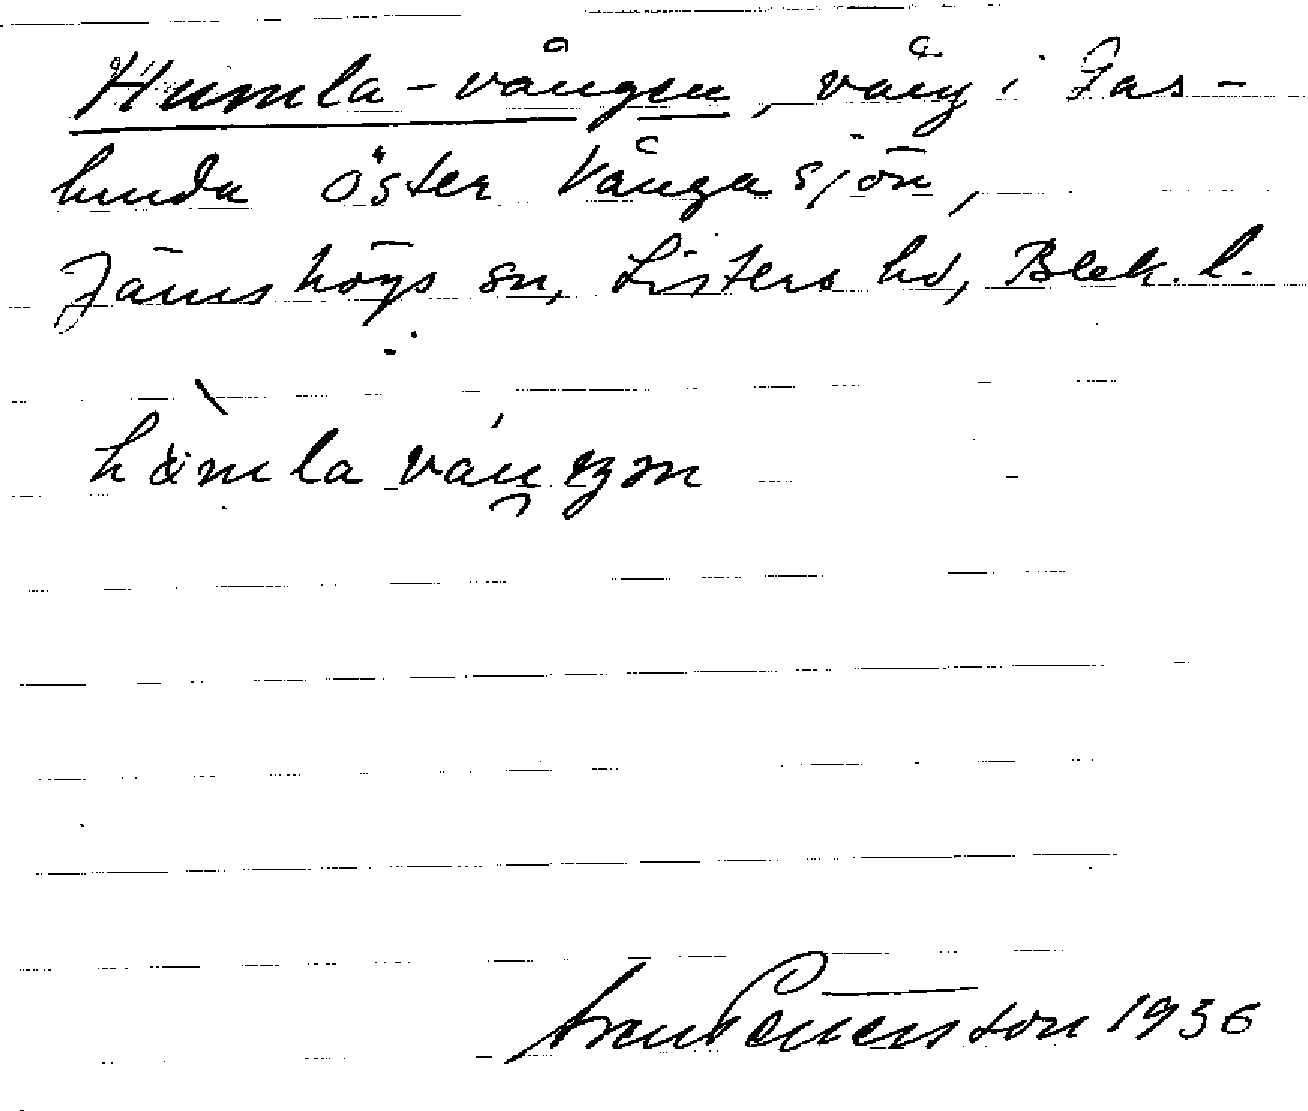 Humla-vången, vång i Gas-
lunda öster Vångasjön,
Jämshögs sn, Listers hd, Blek. l.
hömla vången
Sven Pettersson 1936